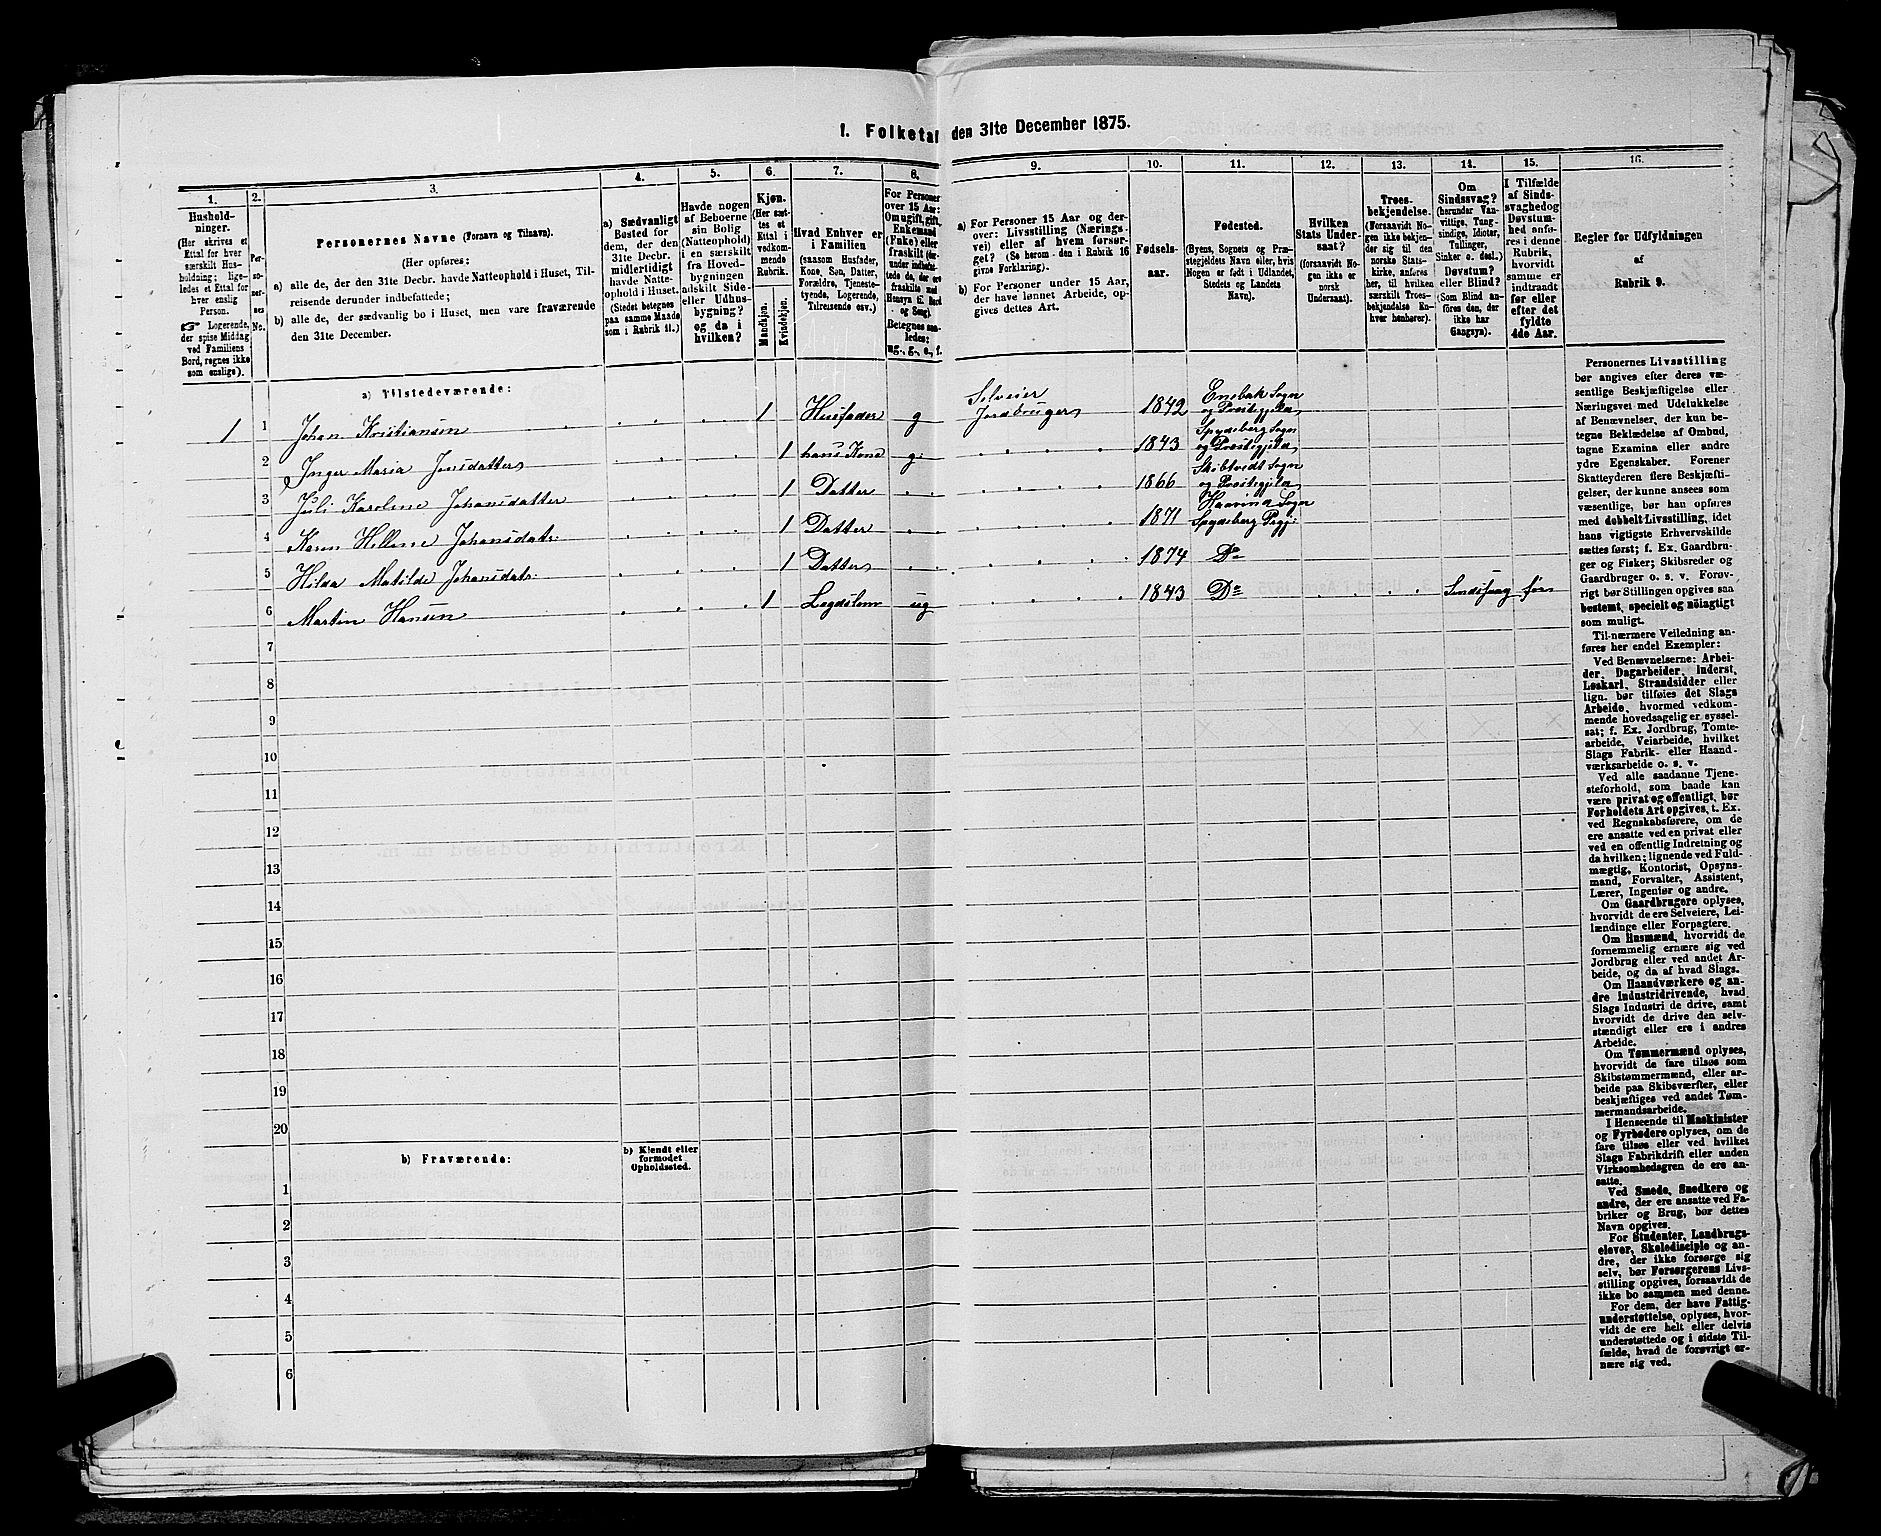 1. Folketal den 31te December 1875.
1.
Hushold-
ninger.
(Her skrives et
Ettal for hver
særskilt Hus-
holdning; lige-
ledes et Ettal for
hver enslig
Person.
☞ Logerende,
der spise Middag
ved Familiens
Bord, regnes ikke
som enslige).
2.
Per-
so-
ner-
nes
No.
3.
Personernes Navne (Fornavn og Tilnavn).
(Her opføres;
a) alle de, der den 31te Decbr. havde Natteophold i Huset, Til-
reisende derunder indbefattede;
b) alle de, der sædvanlig bo i Huset, men vare fraværende
den 31te December.
4.
a) Sædvanligt
Bosted for
dem, der den
31te Decbr.
midlertidigt
havde Natte-
ophold i Huset.
(Stedet betegnes
paa samme Maade
som i Rubrik 11.)
5.
Havde nogen
af Beboerne
sin Bolig
(Natteophold)
i en særskilt
fra Hoved-
bygningen
adskilt Side-
eller Udhus-
bygning?
og da i
hvilken?
6.
Kjøn.
(Her sæt-
tes et
Ettal i
vedkom-
mende
Rubrik.
Mandkjøn.
Kvindekjøn.
7.
Hvad Enhver er
i Familien
(saasom Husfader,
Kone, Søn, Datter,
Forældre, Tjeneste-
tyende, Logerende,
Tilreisende osv.)
8.
For Personer
over 15 Aar:
Om ugift, gift,
Enkemand
(Enke) eller
fraskilt (her-
under indbefat-
tede de, der ere
fraskilte med
Hensyn til Bord
og Seng).
Betegnes saa-
ledes:
ug., g., e., f.
9.
a) For Personer 15 Aar og der-
over: Livsstilling (Nærings-
vei) eller af hvem forsør-
get? (Se herom den i Rubrik 16
givne Forklaring).
b) For Personer under 15 Aar,
der have lønnet Arbeide, op-
gives dettes Art.
10.
Fødsels-
aar.
11.
Fødested.
(Byens, Sognets og Præ-
stegjeldets Navn eller, hvis
Nogen er født i Udlandet,
Stedets og Landets
Navn).
12.
Hvilken
Stats Under-
saat?
(forsaavidt No-
gen ikke er
norsk
Undersaat).
13.
Troes-
bekjendelse.
(Forsaavidt No-
gen ikke bekjen-
der sig til den
norske Stats-
kirke, anføres
her, til hvilken
særskilt Troes-
bekjendelse En-
hver henhører).
14.
Om
Sindssvag?
(herunder Van-
vittige, Tung-
sindige, Idioter,
Tullinger,
Sinker o. desl.)
Døvstum?
eller Blind?
(Som Blind an-
føres den, der
ikke har
Gangsyn).
15.
I Tilfælde
af Sinds-
svaghed og
Døvstum-
hed anfø-
res i denne
Rubrik,
hvorvidt
samme er
indtraadt
før eller
efter det
fyldte
4de Aar.
16.
Regler for Udfyldningen
af
Rubrik 9.
a) Tilstedeværende:
1 1 Johan Kristiansen 1 Husfader g Selveier Jordbruger 1842 Enebak Sogn og Præstegjeld
2 Inger Maria Jensdatter 1 hans Kone g. 1843 Spydeberg Sogn og Præstegjeld
3 Juli Karoline Johansdatter 1 Datter 1866 Skibtvedt Sogn og Præstegjeld
4 Karen Hellene Johansdatr 1 Datter 1871 Haavind Sogn Spydeberg Prgj:
5 Hilda Matilde Johansdatr 1 Datter 1874 Do
6 Martin Hansen 1 Legdslem ug 1843 Do Sindssvag før
7
8
9
10
11
12
13
14
15
16
17
18
19
20
b) Fraværende:
b) Kjendt eller
formodet
Opholdssted.
1
2
3
4
5
6
Personernes Livsstilling
bør angives efter deres væ-
sentlige Beskjæftigelse eller
Næringsvei med Udelukkelse
af Benævnelser, der kun be-
tegne Beklædelse af Ombud,
tagne Examina eller andre
ydre Egenskaber. Forener
Skatteyderen flere Beskjæfti-
gelser, der kunne ansees som
væsentlige, bør han opføres
med dobbelt Livsstilling, idet
hans vigtigste Erhvervskilde
sættes først; f. Ex. Gaardbru-
ger og Fisker; Skibsreder og
Gaardbruger o. s. v. Forøv-
rigt bør Stillingen opgives saa
bestemt, specielt og nöiagtigt
som muligt.
Til nærmere Veiledning an-
føres her endel Exempler:
Ved Benævnelserne: Arbei-
der, Dagarbeider, Inderst,
Løskarl, Strandsidder eller
lign. bør tilføies det Slags
Arbeide, hvormed vedkom-
mende hovedsagelig er syssel-
sat; f. Ex. Jordbrug, Tomte-
arbeide, Veiarbeide, hvilket
Slags Fabrik- eller Haand-
værksarbeide o. s. v.
Ved alle saadanne Tjene-
steforhold, som baade kan
være privat og offentligt, bør
Forholdets Art opgives, t. Ex.
ved Regnskabsførere, om de
ere ansatte ved en privat eller
ved en offentlig Indretning og
da hvilken; lignende ved Fuld-
mægtig, Kontorist, Opsyns-
mand, Forvalter, Assistent,
Lærer, Ingeniør og andre.
Om Gaardbrugere oplyses,
hvorvidt de ere Selveiere, Lei-
lændinge eller Forpagtere.
Om Husmænd, hvorvidt de
fornemmelig ernære sig ved
Jordbrug eller ved andet Ar-
beide, og da af hvad Slags.
Om Haandværkere og an-
dre Industridrivende, hvad
Slags Industri de drive, samt
hvorvidt de drive den selv-
stændigt eller ere i andres
Arbeide.
Om Tømmermænd oplyses,
hvorvidt de fare tilsøs som
Skibstømmermænd, eller ar-
beide paa Skibsværfter, eller
beskjæftiges ved andet Tøm-
mermandsarbeide.
I Henseende til Maskinister
og Fyrbødere oplyses, om de
fare tilsøs eller ved hvilket
Slags Fabrikdrift eller anden
Virksomhedsgren de ere an-
satte.
Ved Smede, Snedkere og
andre, der ere ansatte ved Fa-
briker og Brug, bør dettes
Navn opgives.
For Studenter, Landbrugs-
elever, Skoledisciple og an-
dre, der ikke forsørge sig
selv, bør Forsørgerens Livs-
stilling opgives, forsaavidt de
ikke bo sammen med denne.
For dem, der have Fattig-
understøttelse, oplyses, hvor-
vidt de ere helt eller delvis
understøttede og i sidste Til-
fælde, hvad de forøvrigt er-
nære sig ved.